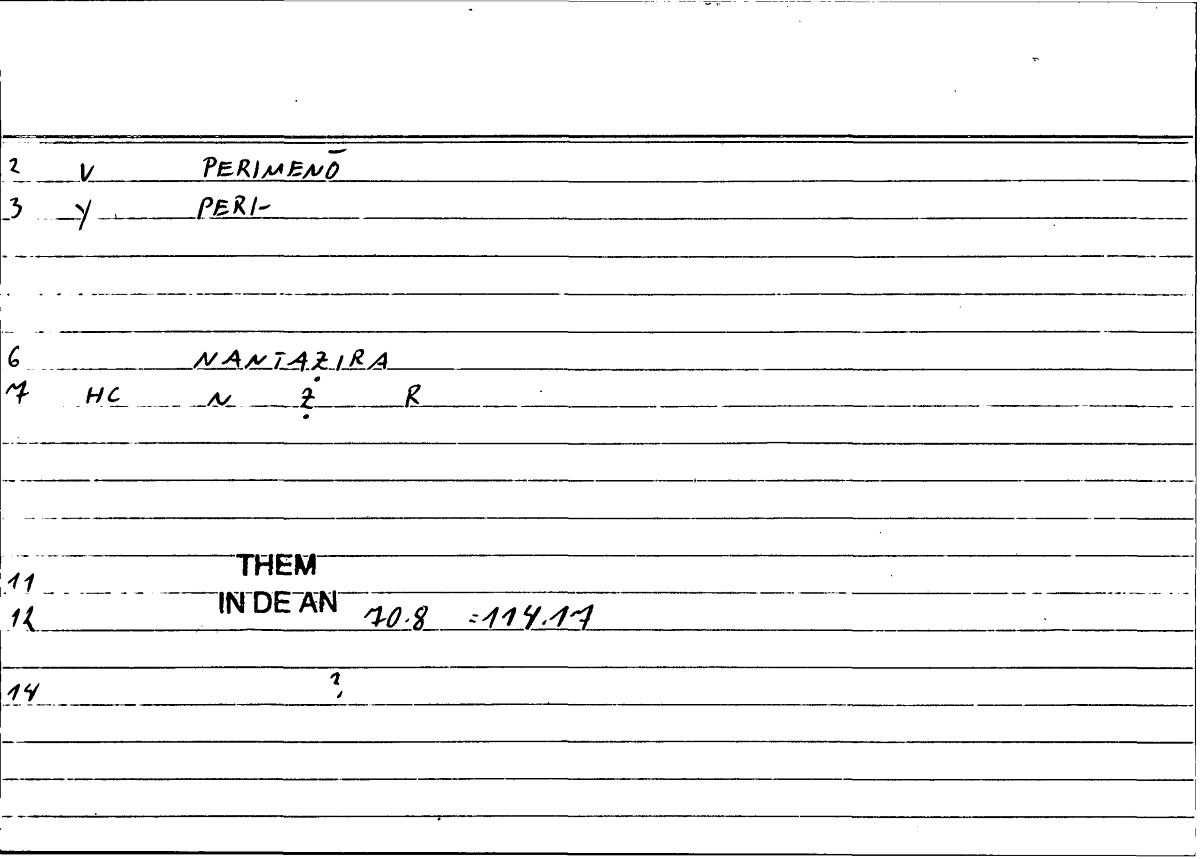 2 V PERIMENŌ
3 Y PERI-
6 NANTAẒIRA
7 HC N Ẓ R
THEM
11
IN DE AN
12 70.8 =114.17
14 ?